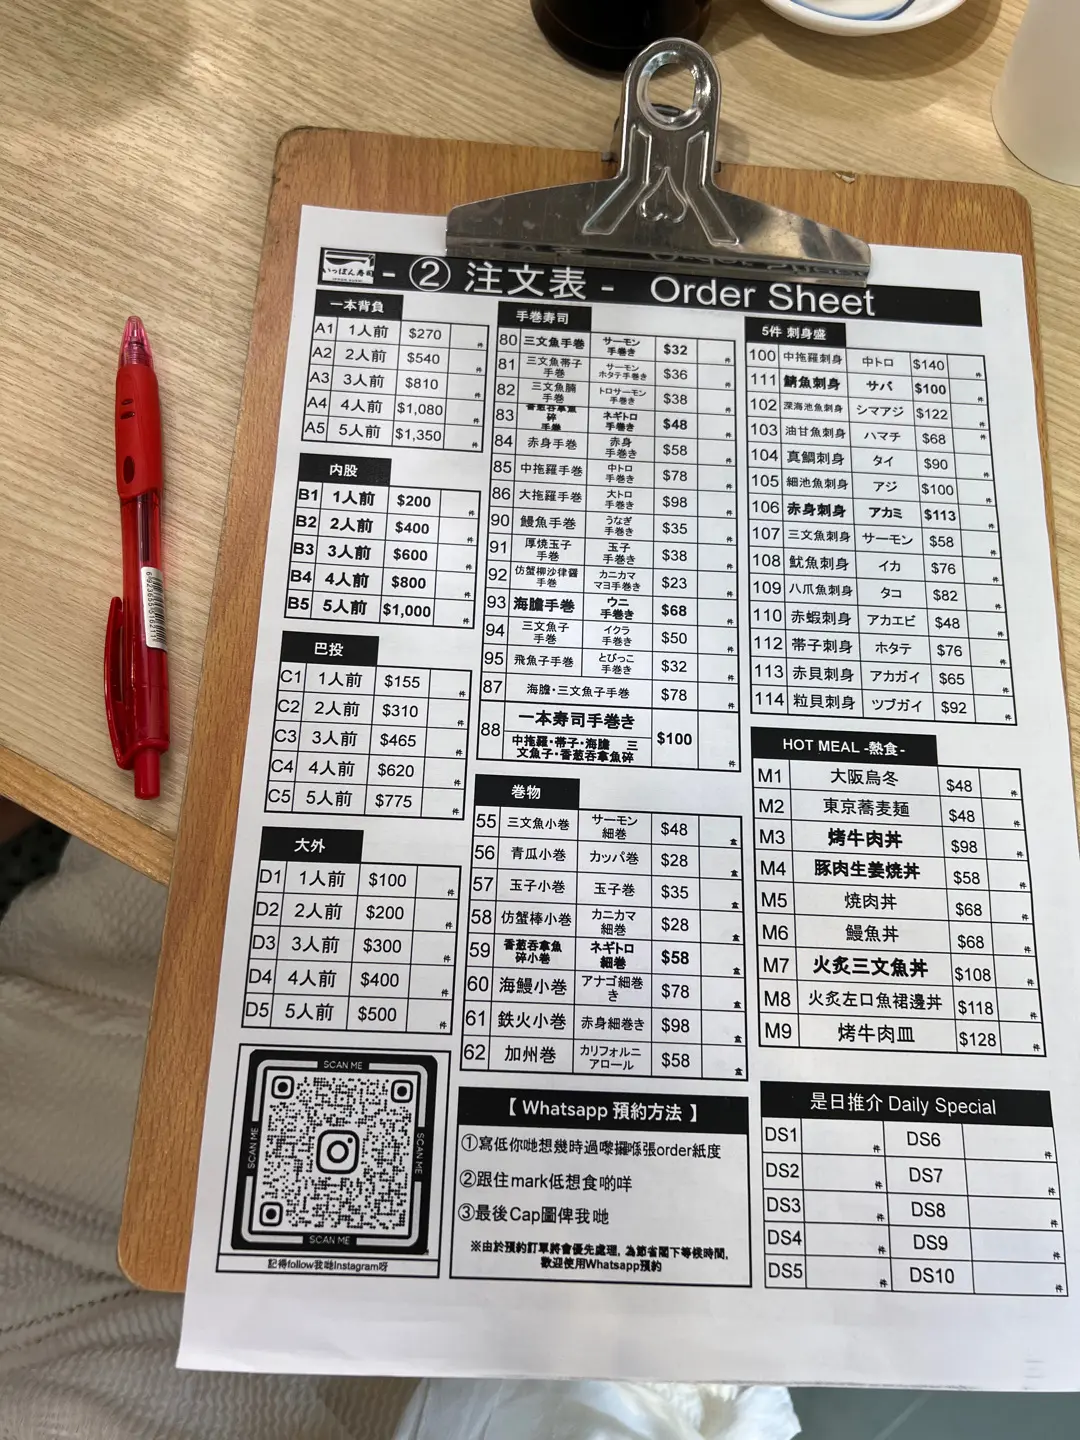 いっぽん寿司
- ② 注文表 - Order Sheet
一本背負
A1 1人前 $270 件
A2 2人前 $540 件
A3 3人前 $810 件
A4 4人前 $1,080 件
A5 5人前 $1,350 件
内股
B1 1人前 $200 件
B2 2人前 $400 件
B3 3人前 $600 件
B4 4人前 $800 件
B5 5人前 $1,000 件
巴投
C1 1人前 $155 件
C2 2人前 $310 件
C3 3人前 $465 件
C4 4人前 $620 件
C5 5人前 $775 件
大外
D1 1人前 $100 件
D2 2人前 $200 件
D3 3人前 $300 件
D4 4人前 $400 件
D5 5人前 $500 件
SCAN ME
SCAN ME
SCAN ME
SCAN ME
記得follow我哋Instagram呀
手巻寿司
80 三文魚手巻 サーモン手巻き $32 件
81 三文魚帯子手巻 サーモンホタテ手巻き $36 件
82 三文魚腩手巻 トロサーモン手巻き $38 件
83 香葱吞拿魚碎手巻 ネギトロ手巻き $48 件
84 赤身手巻 赤身手巻き $58 件
85 中拖羅手巻 中トロ手巻き $78 件
86 大拖羅手巻 大トロ手巻き $98 件
90 鰻魚手巻 うなぎ手巻き $35 件
91 厚焼玉子手巻 玉子手巻き $38 件
92 仿蟹柳沙律醤手巻 カニカママヨ手巻き $23 件
93 海膽手巻 ウニ手巻き $68 件
94 三文魚子手巻 イクラ手巻き $50 件
95 飛魚子手巻 とびっこ手巻き $32 件
87 海膽・三文魚子手巻 $78 件
88 一本寿司手巻き $100 件
中拖羅・帯子・海膽 三文魚子・香葱吞拿魚碎
巻物
55 三文魚小巻 サーモン細巻 $48 盒
56 青瓜小巻 カッパ巻 $28 盒
57 玉子小巻 玉子巻 $35 盒
58 仿蟹棒小巻 カニカマ細巻 $28 盒
59 香葱吞拿魚碎小巻 ネギトロ細巻 $58 盒
60 海鰻小巻 アナゴ細巻き $78 盒
61 鉄火小巻 赤身細巻き $98 盒
62 加州巻 カリフォルニアロール $58 盒
【 Whatsapp 預約方法 】
①寫低你哋想幾時過嚟攞喺張order紙度
②跟住mark低想食啲咩
③最後Cap圖俾我哋
※由於預約訂單將會優先處理, 為節省閣下等候時間,
歡迎使用Whatsapp預約
5件 刺身盛
100 中拖羅刺身 中トロ $140 件
111 鯖魚刺身 サバ $100 件
102 深海池魚刺身 シマアジ $122 件
103 油甘魚刺身 ハマチ $68 件
104 真鯛刺身 タイ $90 件
105 細池魚刺身 アジ $100 件
106 赤身刺身 アカミ $113 件
107 三文魚刺身 サーモン $58 件
108 魷魚刺身 イカ $76 件
109 八爪魚刺身 タコ $82 件
110 赤蝦刺身 アカエビ $48 件
112 帯子刺身 ホタテ $76 件
113 赤貝刺身 アカガイ $65 件
114 粒貝刺身 ツブガイ $92 件
HOT MEAL -熱食-
M1 大阪烏冬 $48 件
M2 東京蕎麦麺 $48 件
M3 烤牛肉丼 $98 件
M4 豚肉生姜焼丼 $58 件
M5 焼肉丼 $68 件
M6 鰻魚丼 $68 件
M7 火炙三文魚丼 $108 件
M8 火炙左口魚裙邊丼 $118 件
M9 烤牛肉皿 $128 件
是日推介 Daily Special
DS1 件 DS6 件
DS2 件 DS7 件
DS3 件 DS8 件
DS4 件 DS9 件
DS5 件 DS10 件